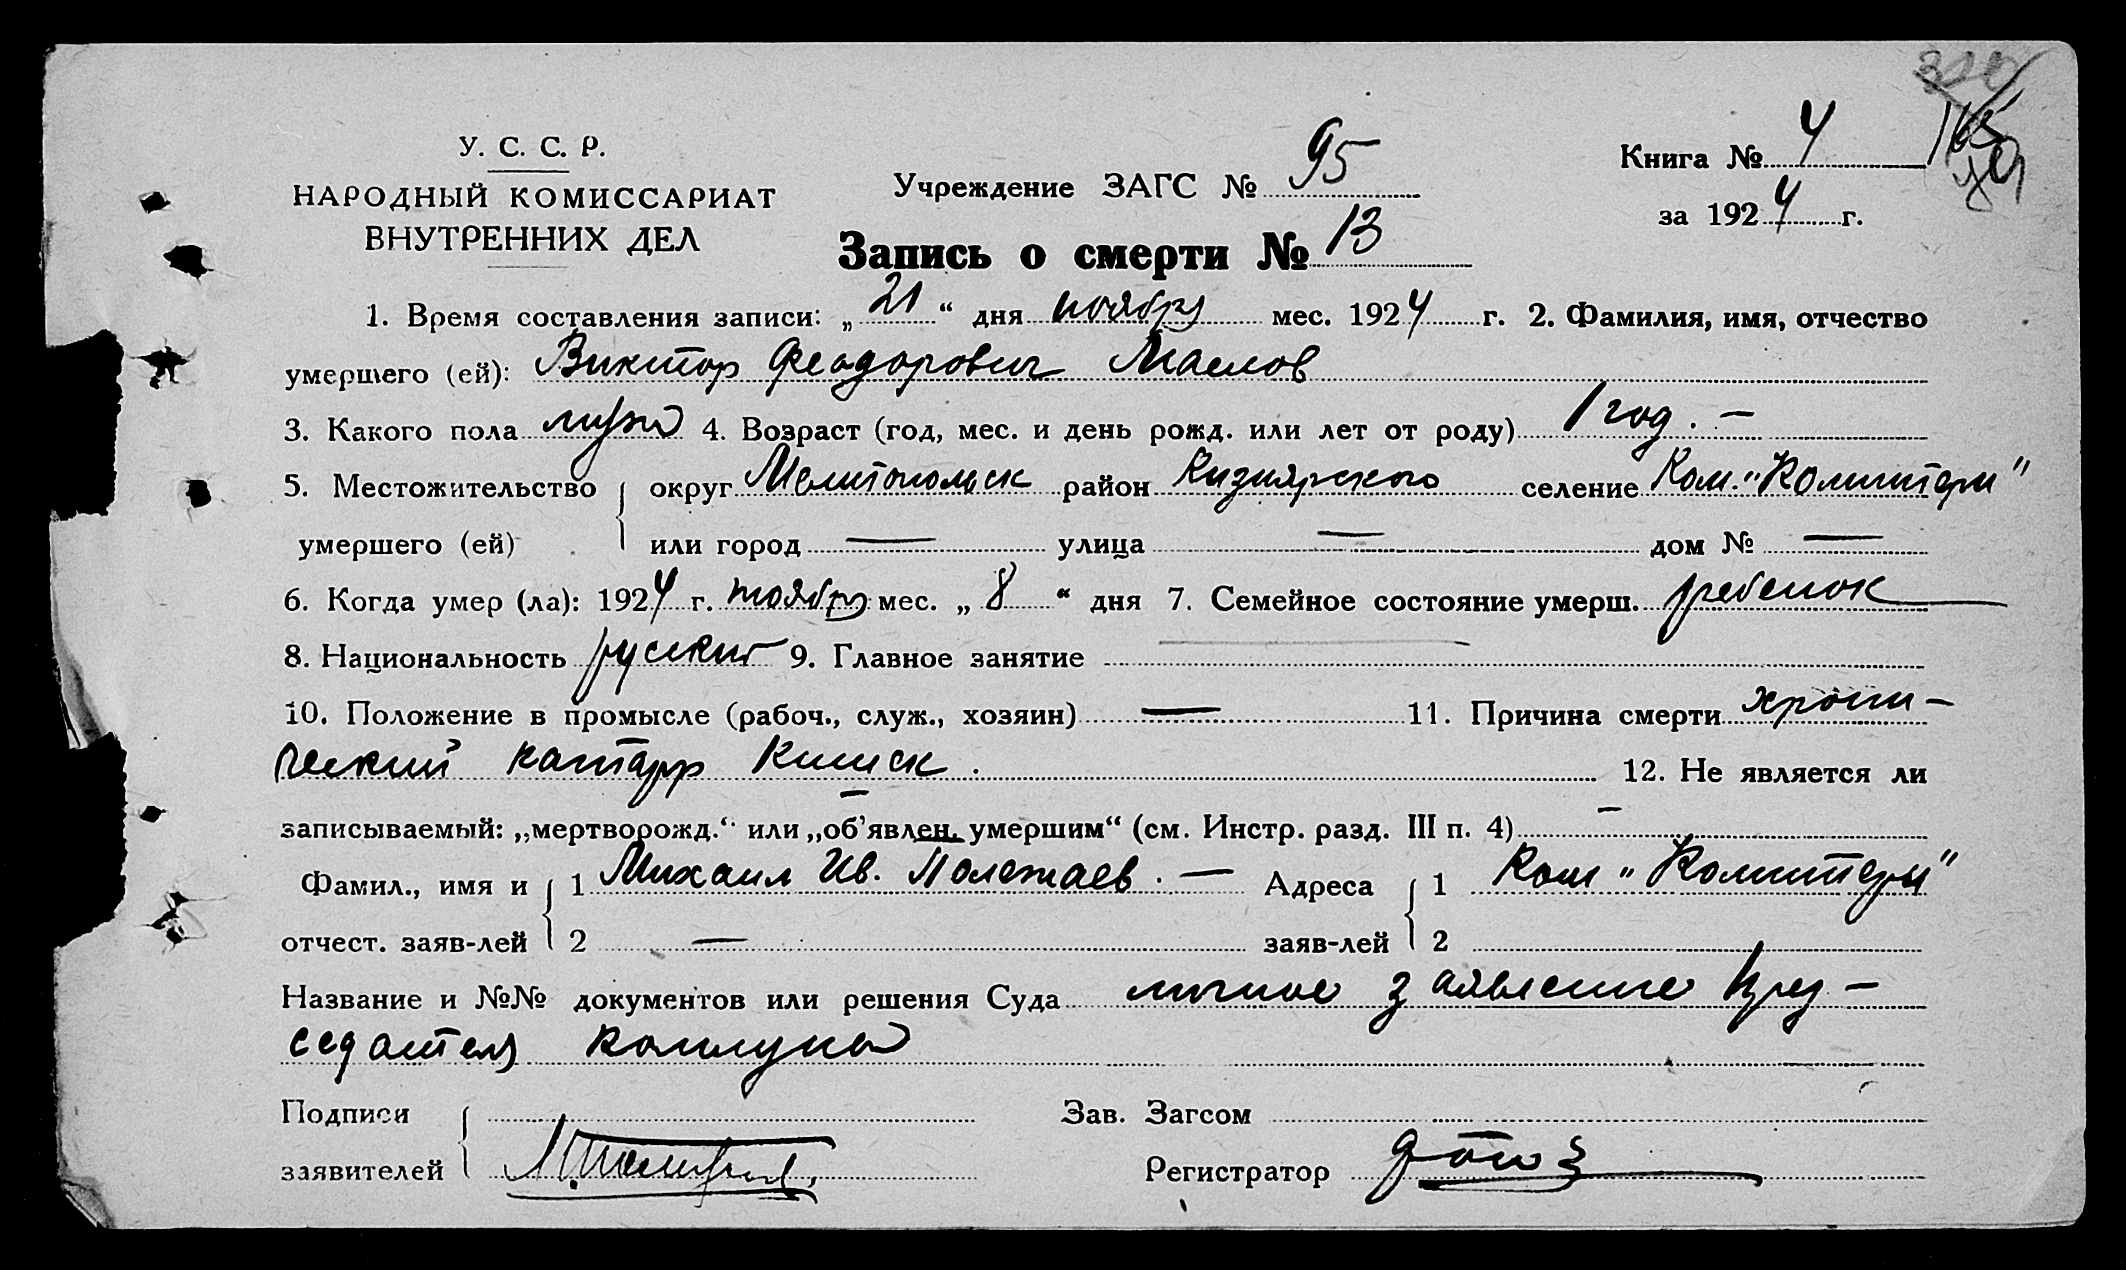 У. С. С. Р.
НАРОДНЫЙ КОМИССАРИАТ
ВНУТРЕННИХ ДЕЛ
Учреждение ЗАГС № 95
Запись о смерти № 13
Книга № 4
за 1924 г.
1. Время составления записи: „21“ дня ноября мес. 1924 г. 2. Фамилия, имя, отчество
умершего (ей): Виктор Феодорович Маслов
3. Какого пола муж 4. Возраст (год, мес. и день рожд. или лет от роду) 1 год. —
5. Местожительство округ Мелитопольск район Кизиярского селение Ком. "Коминтерн"
умершего (ей) или город — улица — дом № —
6. Когда умер (ла): 1924 г. ноября мес. „8“ дня 7. Семейное состояние умерш. ребенок
8. Национальность русский 9. Главное занятие —
10. Положение в промысле (рабоч., служ., хозяин) — 11. Причина смерти хрони-
ческий катарр кишек. 12. Не является ли
записываемый: „мертворожд.“ или „об’явлен. умершим“ (см. Инстр. разд. III п. 4) —
Фамил., имя и 1 Михаил Ив. Полежаев. — Адреса 1 Ком "Коминтерн"
отчест. заяв-лей 2 — заяв-лей 2
Название и №№ документов или решения Суда личное заявление пред-
седателя коммуны
Подписи Зав. Загсом
заявителей Регистратор